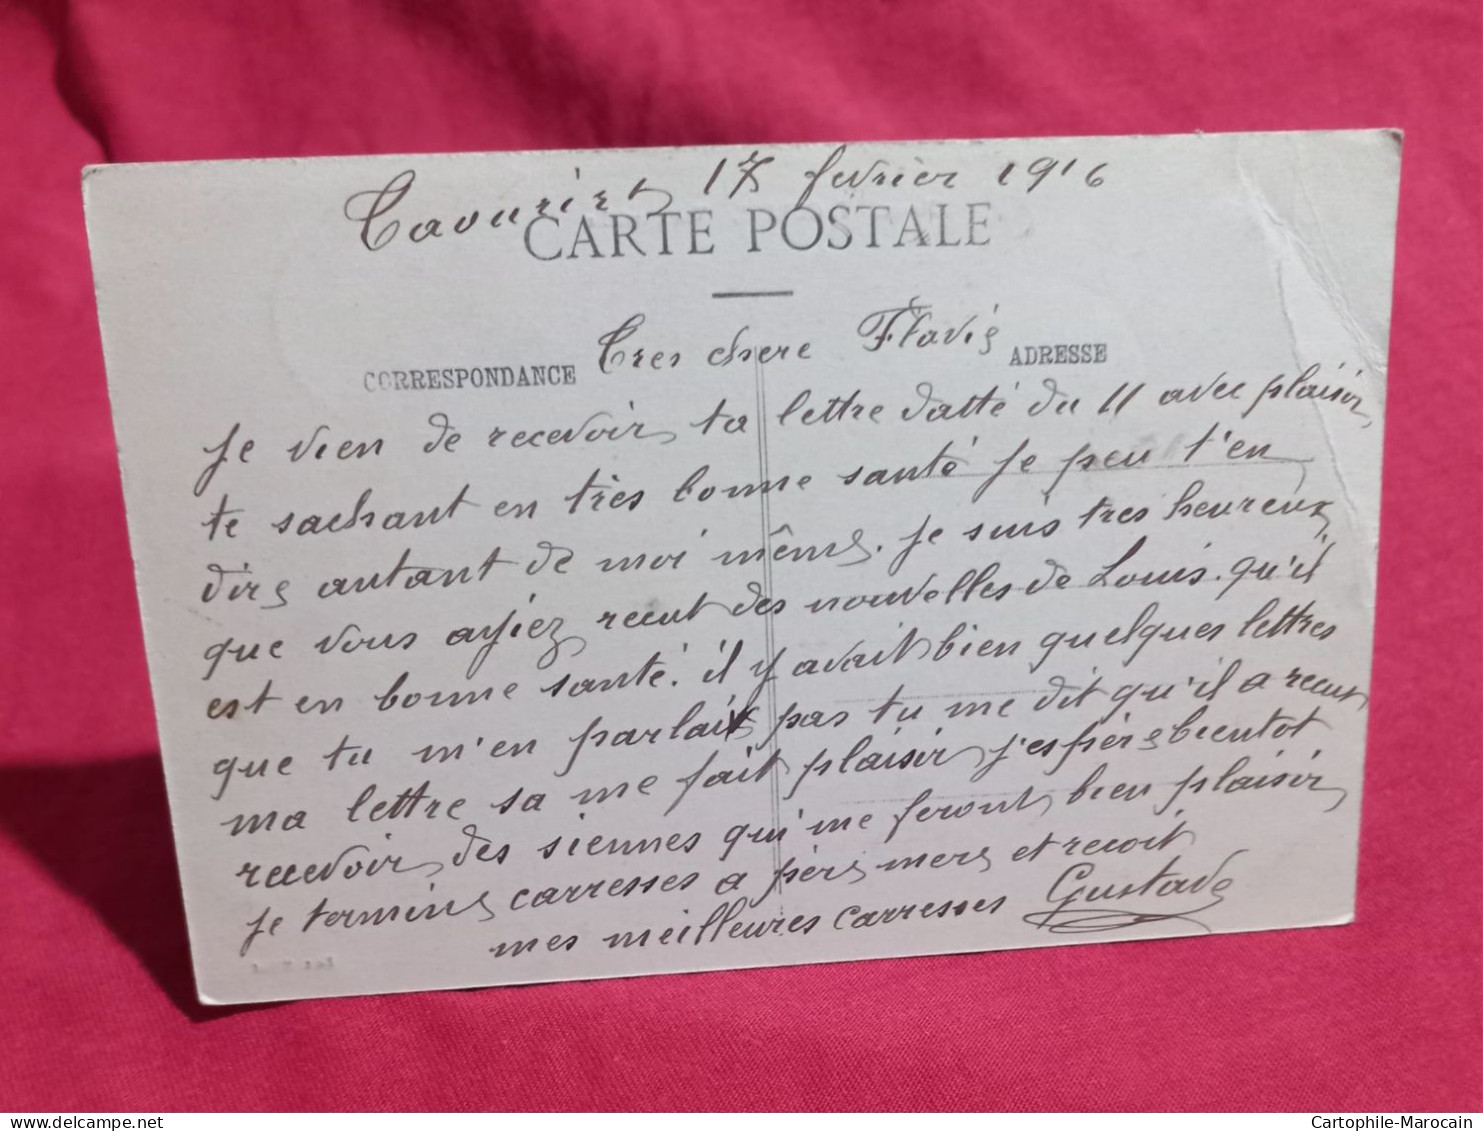 Taourirt 17 fevrier 1916
CARTE POSTALE
CORRESPONDANCE Tres chere Flavie ADRESSE
Je vien de recevoir ta lettre datté du 11 avec plaisir
te sachant en très bonne santé je peu t'en
dire autant de moi même. Je suis tres heureux
que vous ayiez recut des nouvelles de Louis. qu'il
est en bonne santé. il y avait bien quelques lettres
que tu m'en parlait pas tu me dit qu'il a recut
ma lettre sa me fait plaisir j'espère bientot
recevoir des siennes qui me feront bien plaisir
je termine carresses a père mere et recoit
mes meilleures carresses Gustave
Cartophile-Marocain